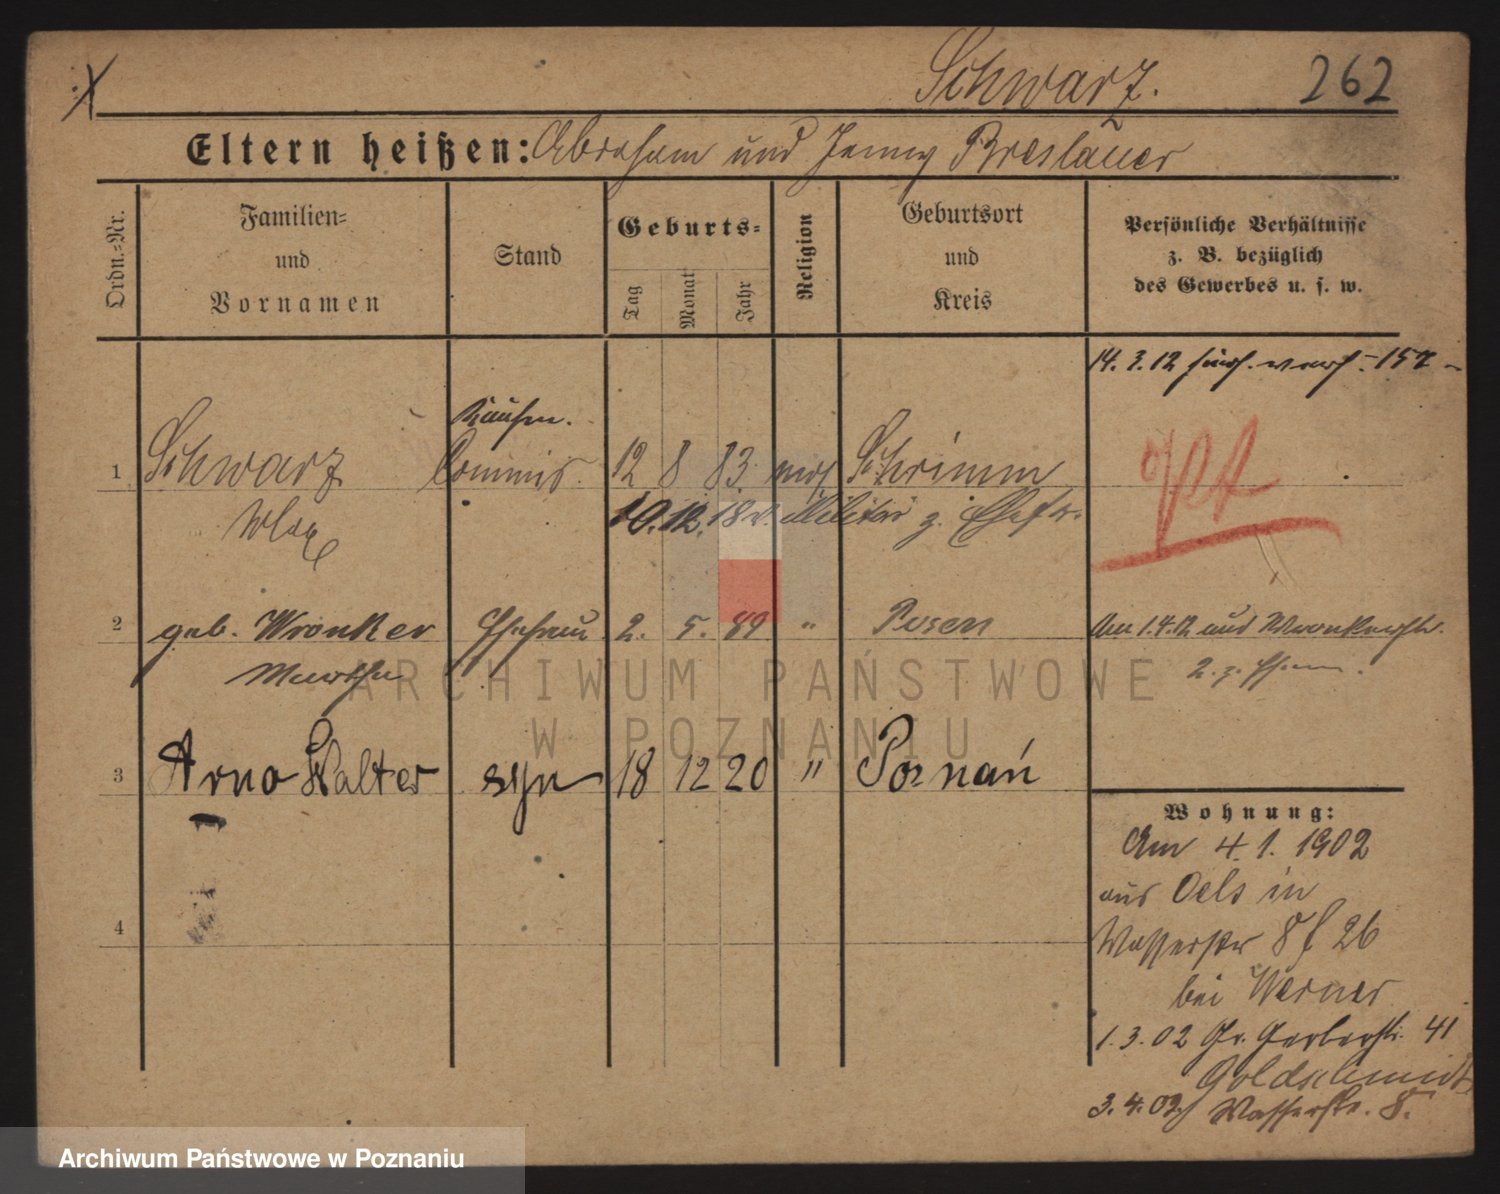 Schwarz. 262
Eltern heißen: Abraham und Jenny Breslauer
Ordn.-Nr.
Familien-
und
Vornamen
Stand
Geburts-
Tag
Monat
Jahr
Religion
Geburtsort
und
Kreis
Persönliche Verhältnisse
z. B. bezüglich
des Gewerbes u. s. w.
14. 3. 12
Kaufm.
1 Schwarz Commis. 12 8 83 mos Schrimm
Max 10. 12. 18 v. Militär z. Ehefr.
2 geb. Wronker Ehefrau 2. 5. 89 " Posen
Martha
Am 1.4.12 aus Wronkerstr.
2. z. Ehem.
ARCHIWUM PAŃSTWOWE
W POZNANIU
3 Arno Walter syn 18 12 20 " Poznań
Wohnung:
Am 4. 1. 1902
aus Oels in
Wasserstr 8 f 26
bei Werner
1. 3. 02 Gr. Gerberstr. 41
Goldschmidt
3. 4. 02 Wasserstr. 8.
4
Archiwum Państwowe w Poznaniu